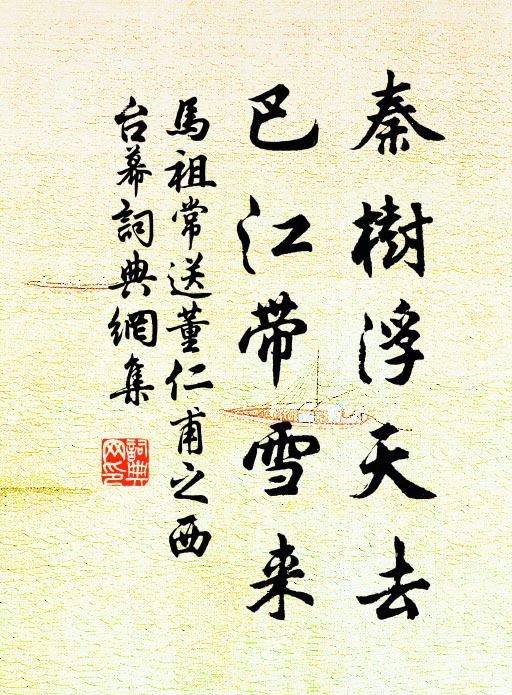 秦樹浮天去
巴江带雪来
馬祖常送董仁甫之西
台幕詞典網集
詞典网印